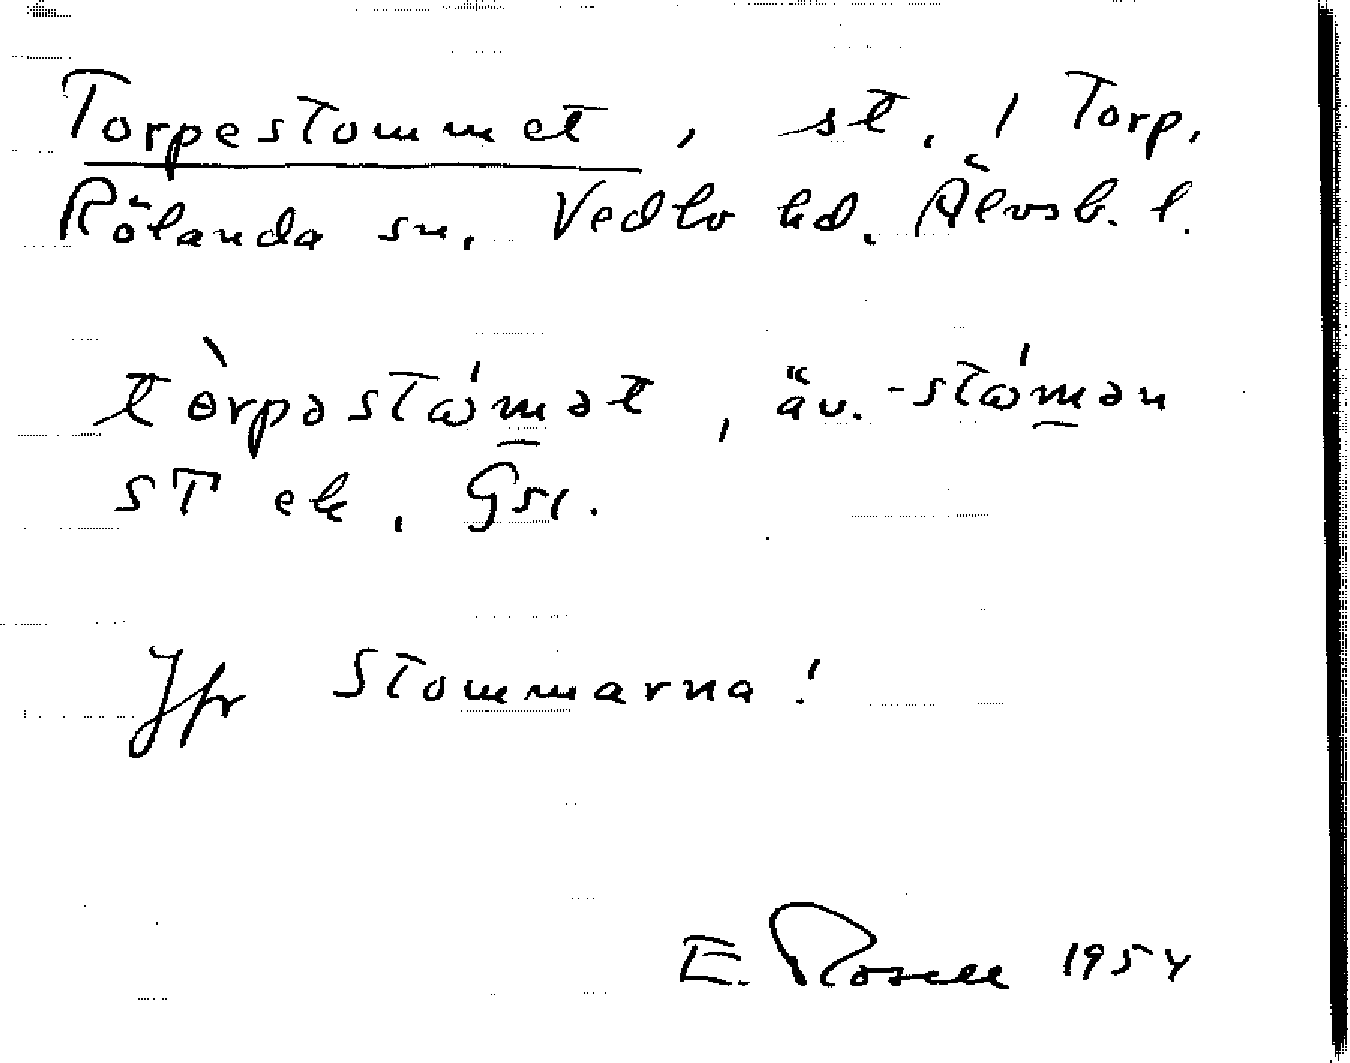 Torpestommet, st. / Torp,
Rölanda sn, Vedbo hd. Älvsb. l.
tòrpəstɷ́m̲ət, äv. -stɷ́m̲ən
ST ek, Gsr.
Jfr Stommarna!
E. Rosell 1954